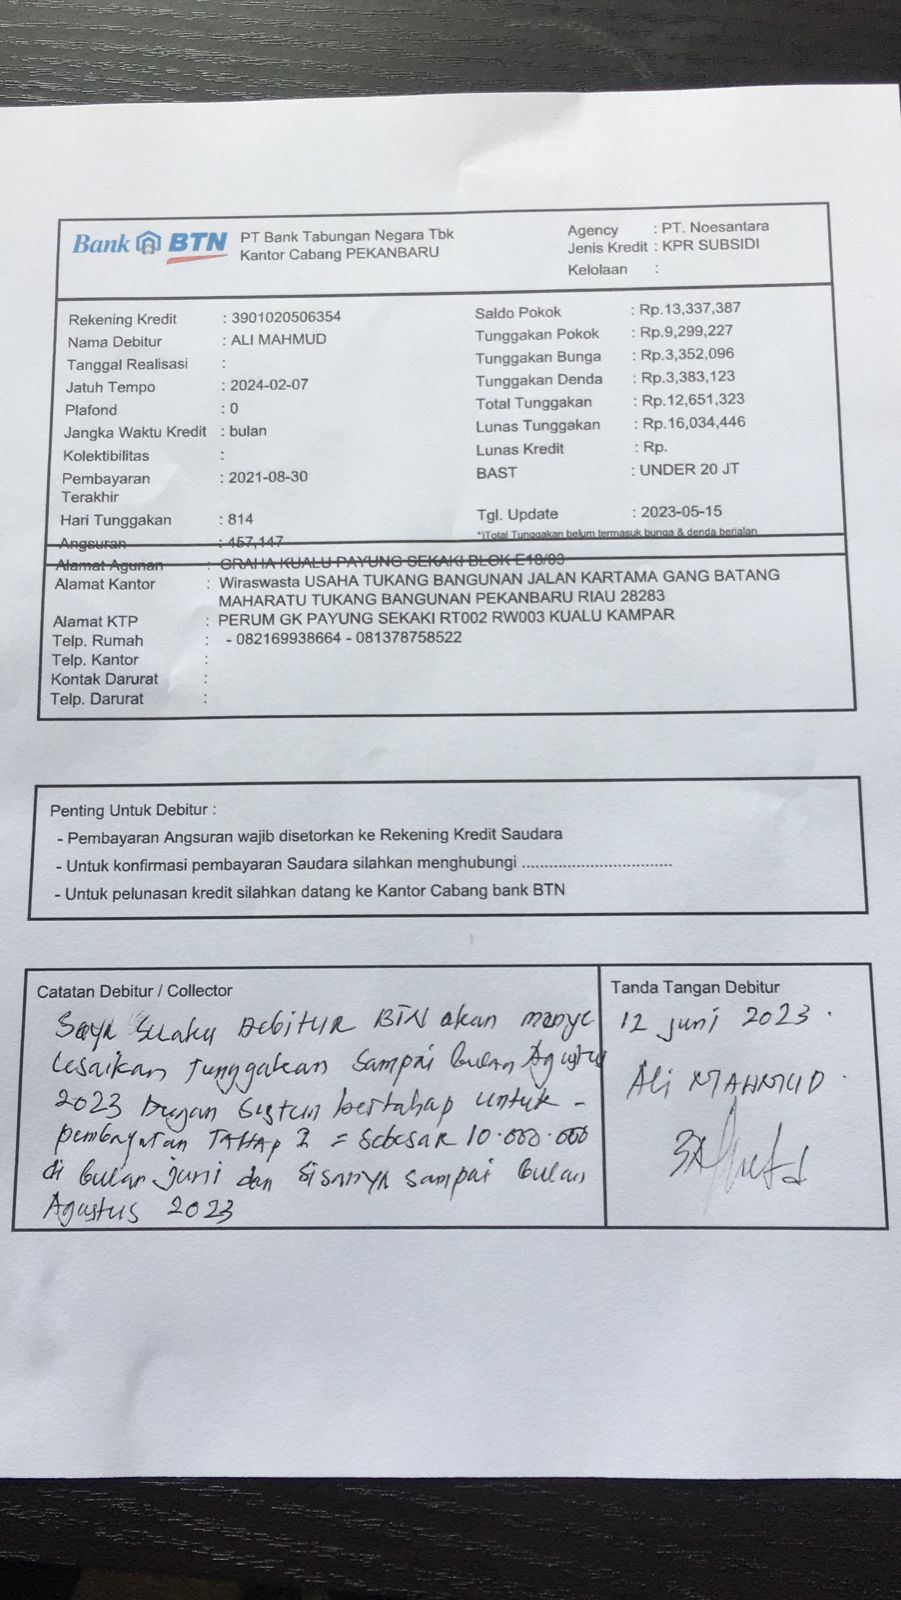 Bank BTN
PT Bank Tabungan Negara Tbk
Kantor Cabang PEKANBARU
Agency : PT. Noesantara
Jenis Kredit : KPR SUBSIDI
Kelolaan :
Rekening Kredit : 3901020506354
Nama Debitur : ALI MAHMUD
Tanggal Realisasi :
Jatuh Tempo : 2024-02-07
Plafond : 0
Jangka Waktu Kredit : bulan
Kolektibilitas :
Pembayaran Terakhir : 2021-08-30
Hari Tunggakan : 814
Angsuran : 457,147
Saldo Pokok : Rp.13,337,387
Tunggakan Pokok : Rp.9,299,227
Tunggakan Bunga : Rp.3,352,096
Tunggakan Denda : Rp.3,383,123
Total Tunggakan : Rp.12,651,323
Lunas Tunggakan : Rp.16,034,446
Lunas Kredit : Rp.
BAST : UNDER 20 JT
Tgl. Update : 2023-05-15
*)Total Tunggakan belum termasuk bunga & denda berjalan
Alamat Agunan : GRAHA KUALU PAYUNG SEKAKI BLOK E18/03
Alamat Kantor : Wiraswasta USAHA TUKANG BANGUNAN JALAN KARTAMA GANG BATANG
MAHARATU TUKANG BANGUNAN PEKANBARU RIAU 28283
Alamat KTP : PERUM GK PAYUNG SEKAKI RT002 RW003 KUALU KAMPAR
Telp. Rumah : - 082169938664 - 081378758522
Telp. Kantor :
Kontak Darurat :
Telp. Darurat :
Penting Untuk Debitur :
- Pembayaran Angsuran wajib disetorkan ke Rekening Kredit Saudara
- Untuk konfirmasi pembayaran Saudara silahkan menghubungi ..................................
- Untuk pelunasan kredit silahkan datang ke Kantor Cabang bank BTN
Catatan Debitur / Collector
Saya Suaku Debitur BTN akan menye
lesaikan Tunggakan Sampai bulan Agustus
2023 Dengan Sistem bertahap untuk -
pembayatan TAHAP I = Sebesar 10.000.000
di bulan juni dan Sisanya sampai bulan
Agustus 2023
Tanda Tangan Debitur
12 juni 2023.
Ali MAHMUD.